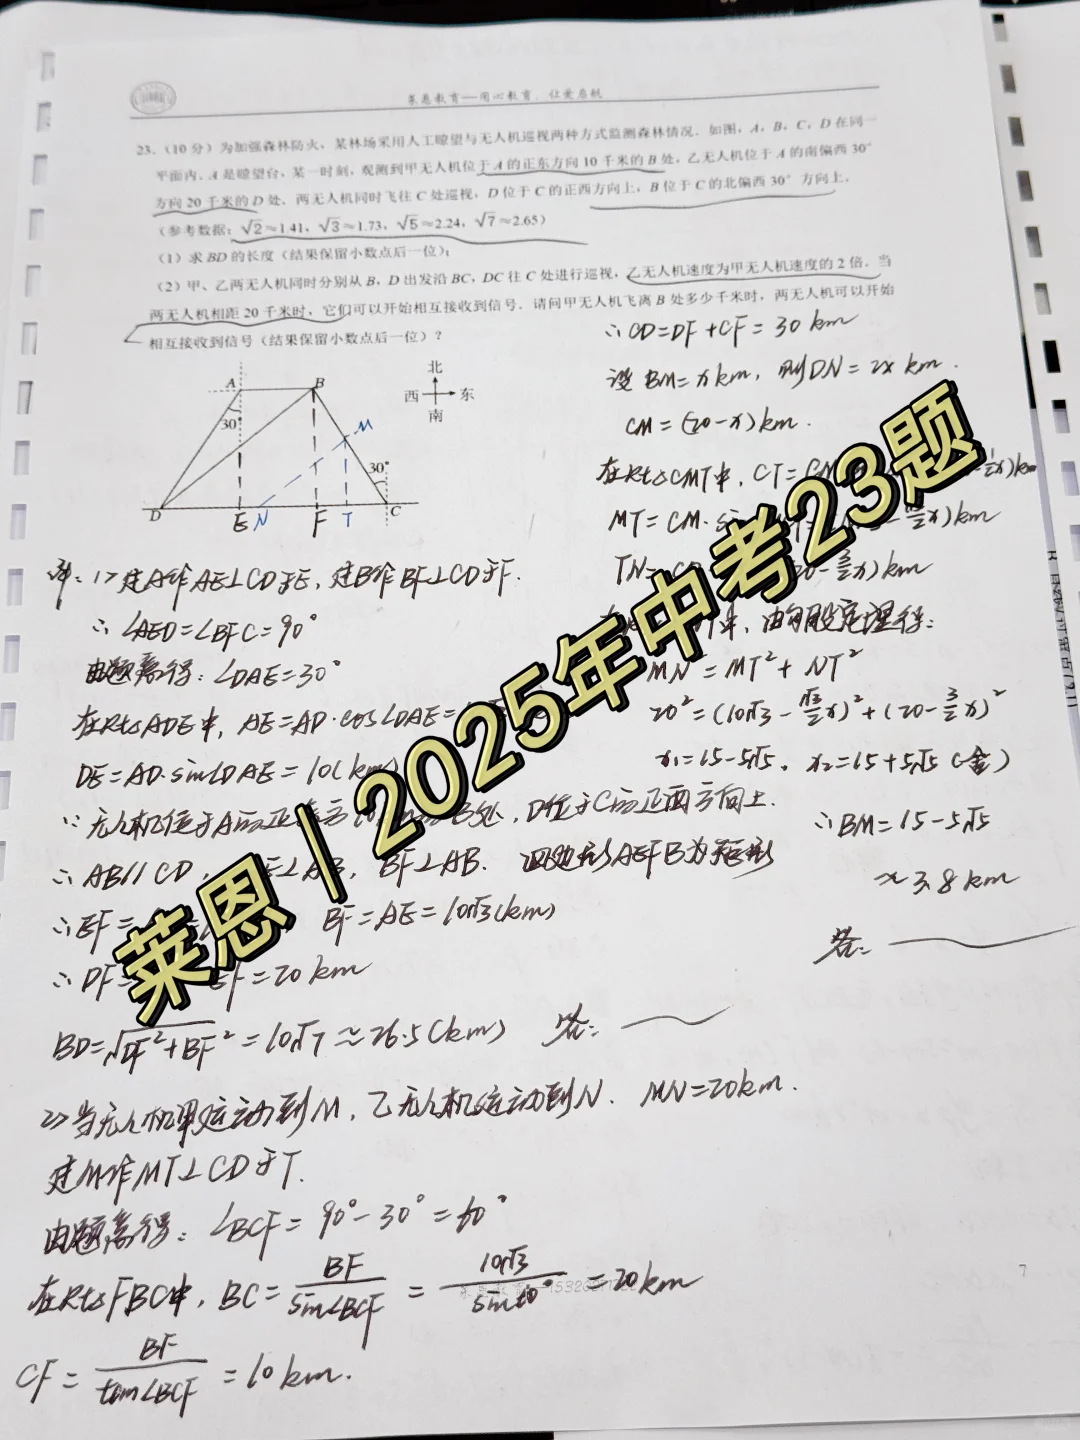 莱恩教育—用心教育，让爱启航
23.（10分）为加强森林防火，某林场采用人工瞭望与无人机巡视两种方式监测森林情况．如图，A，B，C，D在同一
平面内．A是瞭望台，某一时刻，观测到甲无人机位于A的正东方向10千米的B处，乙无人机位于A的南偏西30°
方向20千米的D处．两无人机同时飞往C处巡视，D位于C的正西方向上，B位于C的北偏西30°方向上．
（参考数据：√2≈1.41，√3≈1.73，√5≈2.24，√7≈2.65）
（1）求BD的长度（结果保留小数点后一位）；
（2）甲、乙两无人机同时分别从B，D出发沿BC，DC往C处进行巡视，乙无人机速度为甲无人机速度的2倍．当
两无人机相距20千米时，它们可以开始相互接收到信号．请问甲无人机飞离B处多少千米时，两无人机可以开始
相互接收到信号（结果保留小数点后一位）？
A B M
30° 30°
D E N F T C
北
西 东
南
解：1> 过A作AE⊥CD于E，过B作BF⊥CD于F.
∴ ∠AED=∠BFC=90°
由题意得：∠DAE=30°
在Rt△ADE中，AE=AD·cos∠DAE=
DE=AD·sin∠DAE=10(km)
∵ 无人机位于A的正东方 B处，D位于C的正西方向上.
∴ AB∥CD， ⊥AB，BF⊥AB. 四边形AEFB为矩形
∴ EF= BF=AE=10√3(km)
∴ DF= EF=20km
BD=√DF²+BF²=10√7≈26.5(km) 答：
2> 当无人机甲运动到M，乙无人机运动到N. MN=20km.
过M作MT⊥CD于T.
由题意得：∠BCF=90°-30°=60°
在Rt△FBC中，BC=BF/sin∠BCF=10√3/sin60°=20km
CF=BF/tan∠BCF=10km.
∴ CD=DF+CF=30km
设BM=xkm，则DN=2xkm.
CM=(20-x)km.
在Rt△CMT中，CT=
MT=CM·
TN= 20-3/2x)km
中，由勾股定理得：
MN²=MT²+NT²
20²=(10√3-√3/2x)²+(20-3/2x)²
x₁=15-5√5，x₂=15+5√5(舍)
∴ BM=15-5√5
≈3.8km
答：
莱恩｜2025年中考23题
7